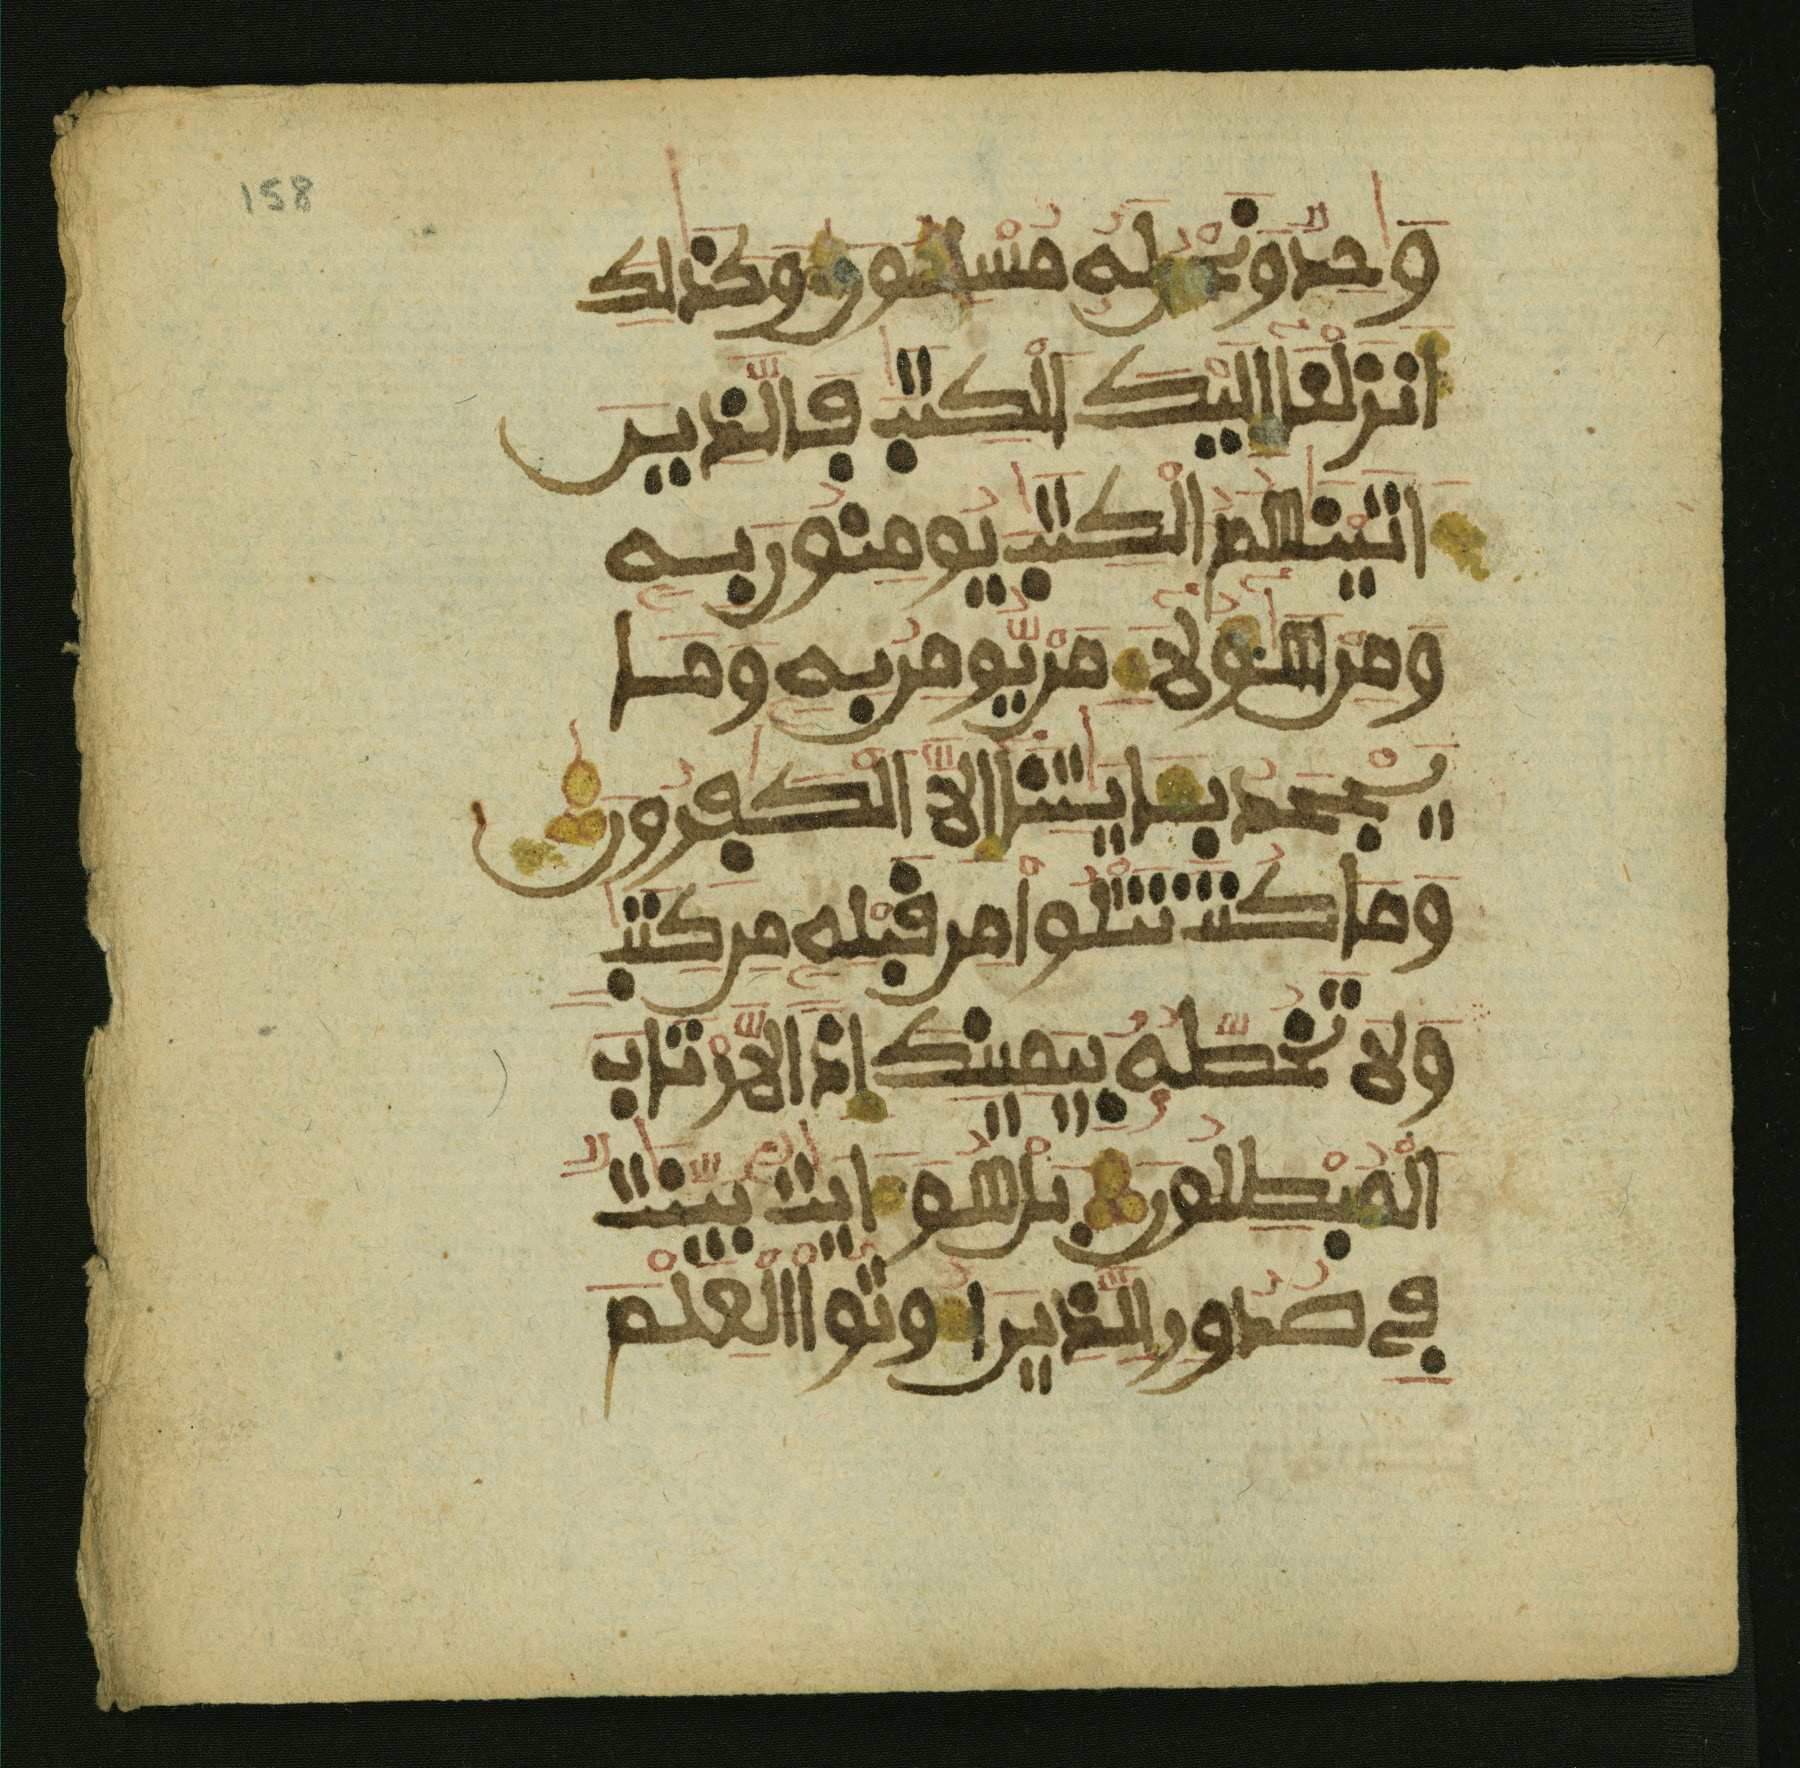 158
وَٰحِدٌ وَنَحْنُ لَهُ مُسْلِمُونَ وَكَذَٰلِكَ
اَنزَلْنَا إِلَيْكَ اَلْكِتَٰبَ فَالَّذِينَ
ءَاتَيْنَٰهُمُ اَلْكِتَٰبَ يُومِنُونَ بِهِ
وَمِنْ هَٰؤُلَاءِ مَنْ يُّومِنُ بِهِ وَمَا
يَجْحَدُ بِـَٔايَٰتِنَا إِلَّا اَلْكَٰفِرُونَ
وَمَا كُنتَ تَتْلُواْ مِن قَبْلِهِ مِن كِتَٰبٍ
وَلَا تَخُطُّهُ بِيَمِينِكَ إِذاً لَّارْتَابَ
اَلْمُبْطِلُونَ بَلْ هُوَ ءَايَٰتٌ بَيِّنَٰتٌ
فِي صُدُورِ اِلَّذِينَ أُوتُواْ اُلْعِلْمَ